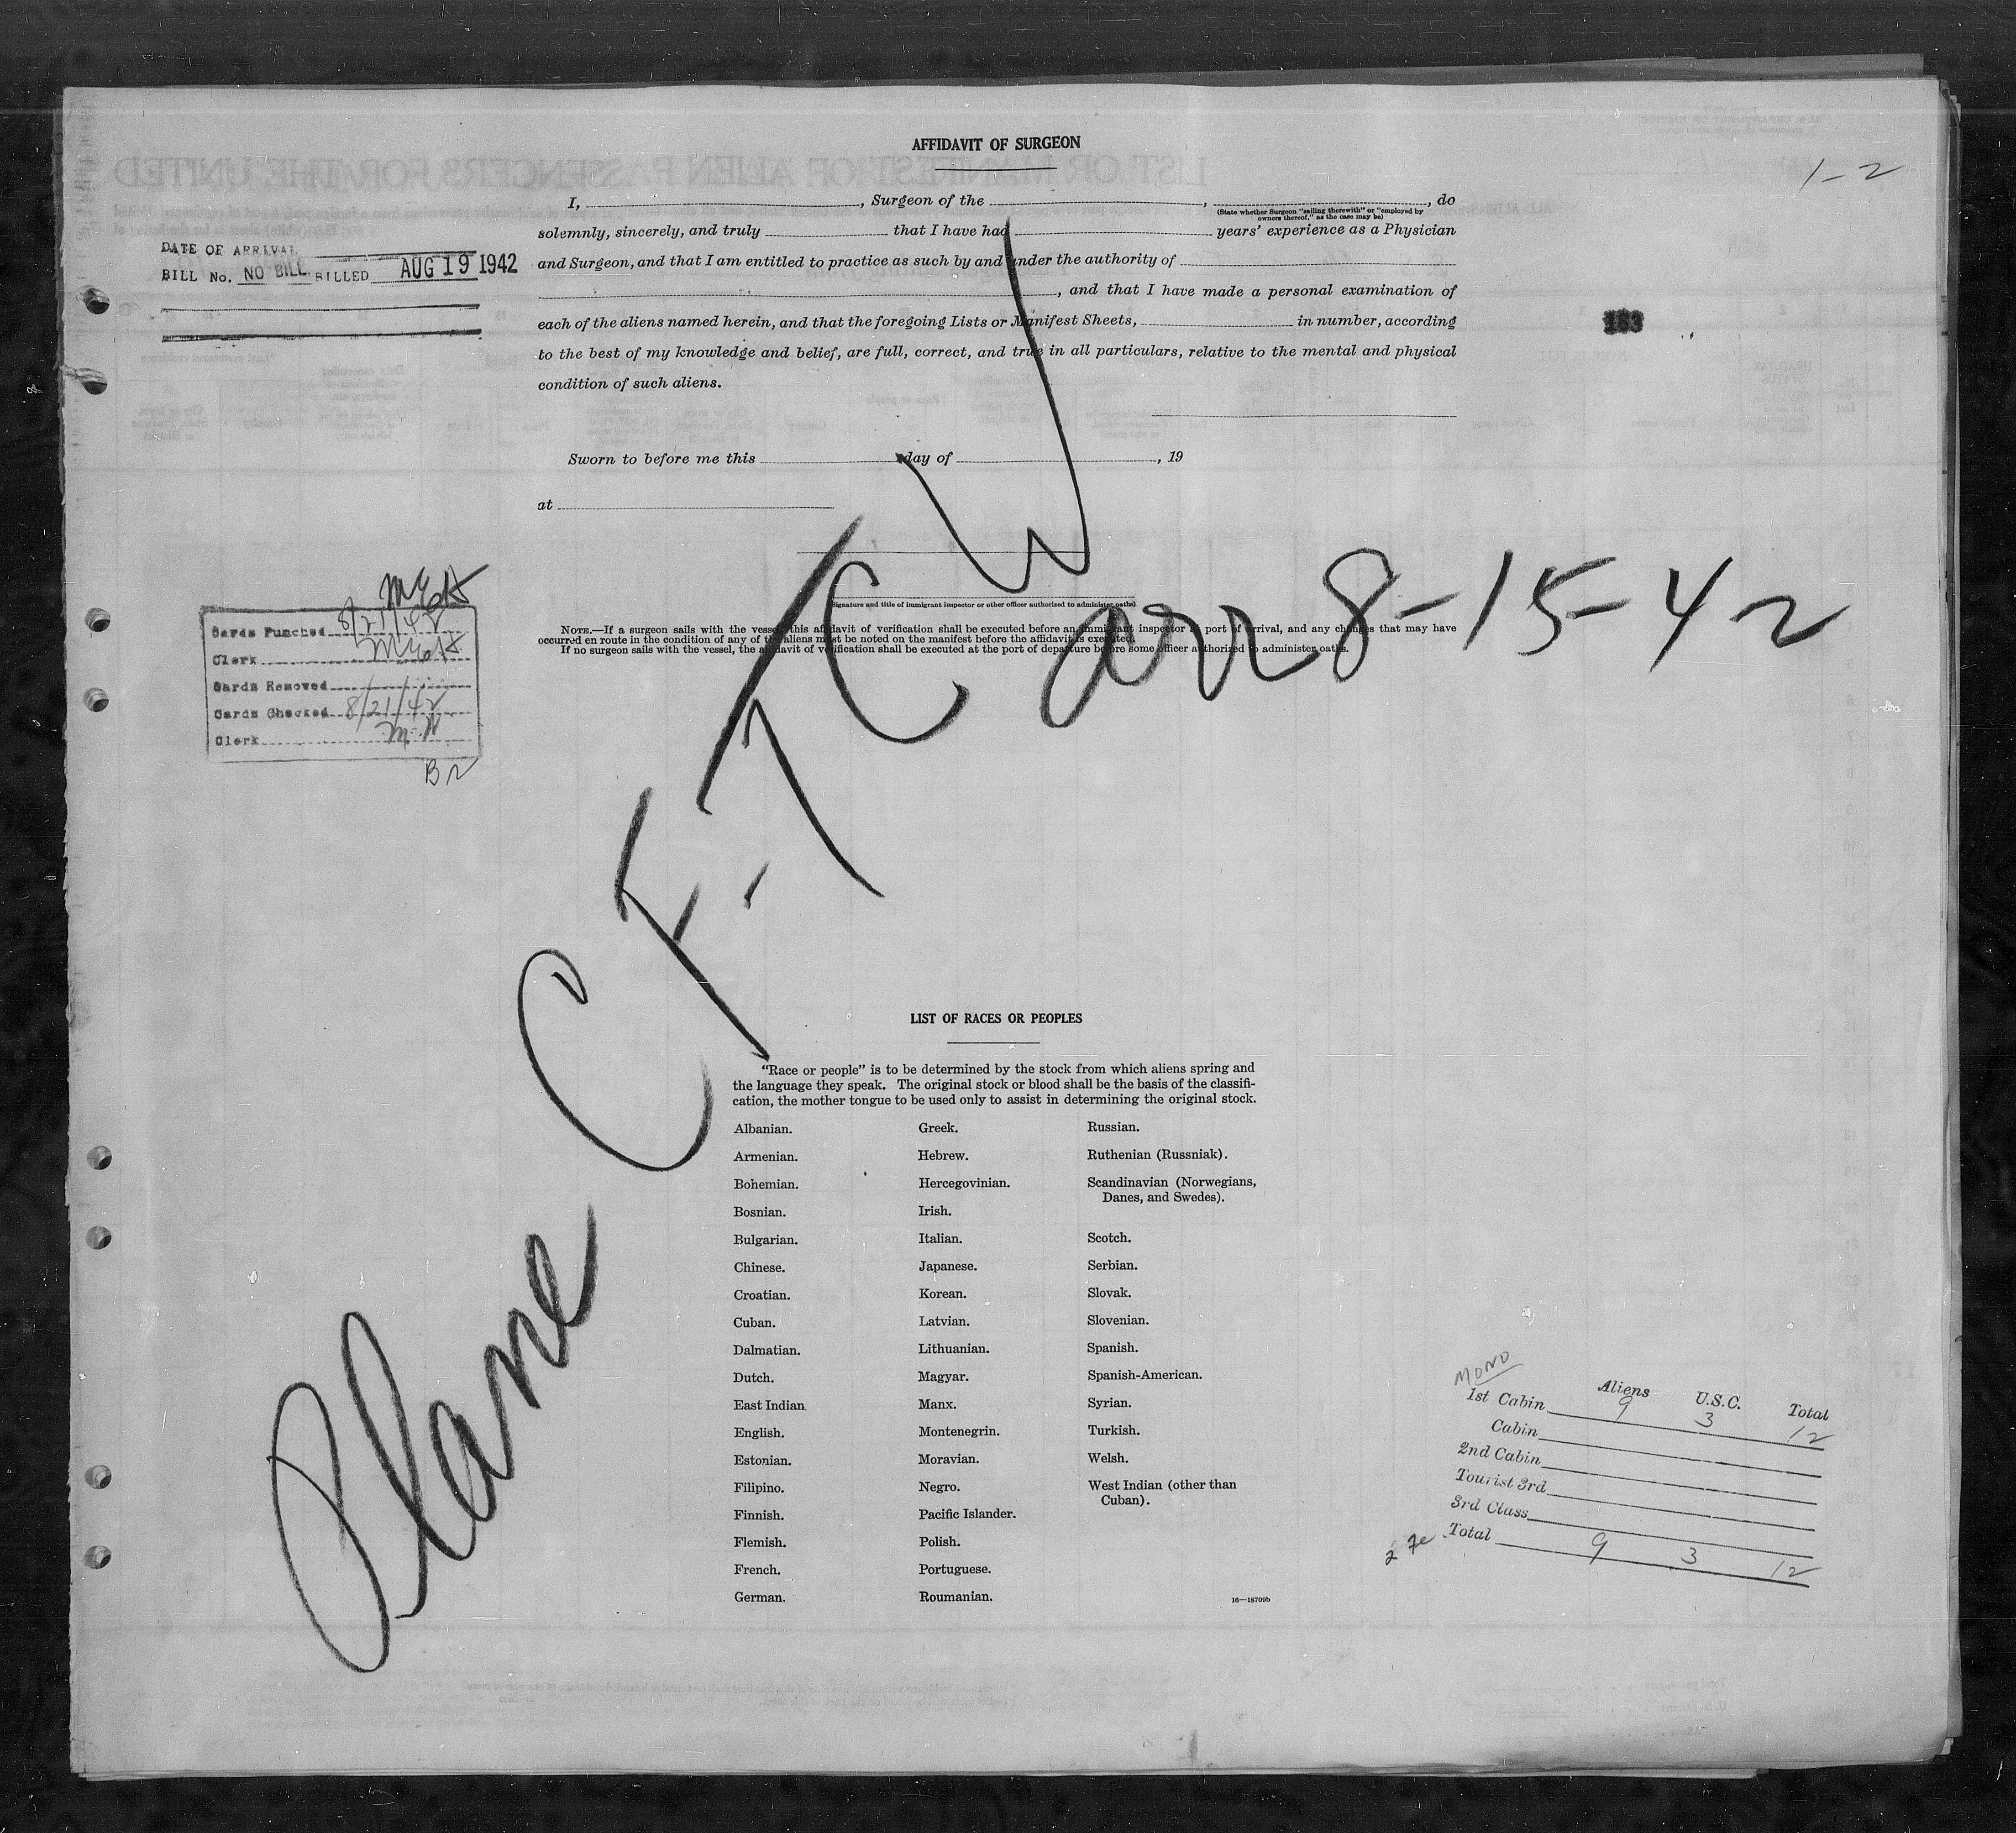 AFFIDAVIT OF SURGEON
1-2
I, , Surgeon of the , , do
(State whether Surgeon "sailing therewith" or "employed by
owners thereof," as the case may be)
solemnly, sincerely, and truly that I have had years' experience as a Physician
and Surgeon, and that I am entitled to practice as such by and under the authority of
, and that I have made a personal examination of
each of the aliens named herein, and that the foregoing Lists or Manifest Sheets, in number, according
to the best of my knowledge and belief, are full, correct, and true in all particulars, relative to the mental and physical
condition of such aliens.
DATE OF ARRIVAL
BILL No. NO BILL BILLED AUG 19 1942
163
Sworn to before me this day of , 19
at
(Signature and title of immigrant inspector or other officer authorized to administer oaths)
NOTE.—If a surgeon sails with the vessel, this affidavit of verification shall be executed before an immigrant inspector at port of arrival, and any changes that may have
occurred en route in the condition of any of the aliens must be noted on the manifest before the affidavit is executed.
If no surgeon sails with the vessel, the affidavit of verification shall be executed at the port of departure before some officer authorized to administer oaths.
Cards Punched 8/21/42
Clerk
Cards Removed
Cards Checked 8/21/42
Clerk
Plane CF-TCW arr 8-15-42
LIST OF RACES OR PEOPLES
"Race or people" is to be determined by the stock from which aliens spring and
the language they speak. The original stock or blood shall be the basis of the classifi-
cation, the mother tongue to be used only to assist in determining the original stock.
Albanian. Greek. Russian.
Armenian. Hebrew. Ruthenian (Russniak).
Bohemian. Hercegovinian. Scandinavian (Norwegians,
Danes, and Swedes).
Bosnian. Irish.
Bulgarian. Italian. Scotch.
Chinese. Japanese. Serbian.
Croatian. Korean. Slovak.
Cuban. Latvian. Slovenian.
Dalmatian. Lithuanian. Spanish.
Dutch. Magyar. Spanish-American.
East Indian Manx. Syrian.
English. Montenegrin. Turkish.
Estonian. Moravian. Welsh.
Filipino. Negro. West Indian (other than
Cuban).
Finnish. Pacific Islander.
Flemish. Polish.
French. Portuguese.
German. Roumanian.
16—18709b
MONO
Aliens U.S.C. Total
1st Cabin 9 3 12
Cabin
2nd Cabin
Tourist 3rd
3rd Class
Total 9 3 12